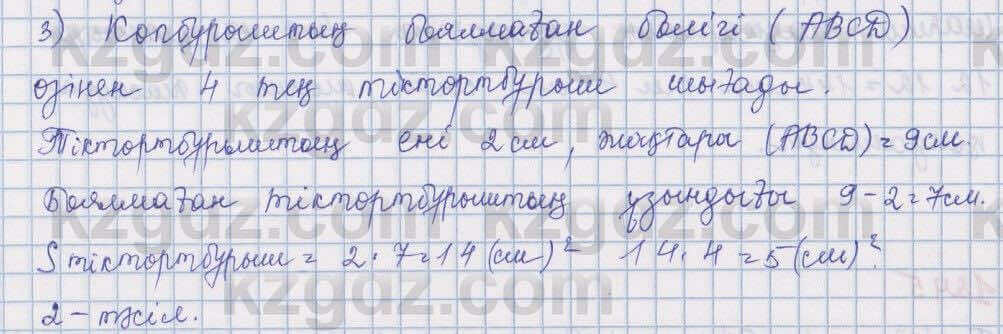 3) Көпбұрыштың боялмаған бөлігі (ABCD)
өзінен 4 тең тіктөртбұрыш шығады.
Тіктөртбұрыштың ені 2 см, жақтары (ABCD) = 9 см.
Боялмаған тіктөртбұрыштың ұзындығы 9 - 2 = 7 см.
S тіктөртбұрыш = 2 · 7 = 14 (см)² 14 · 4 = 5 (см)².
2 - тәсіл.
kzgdz.com